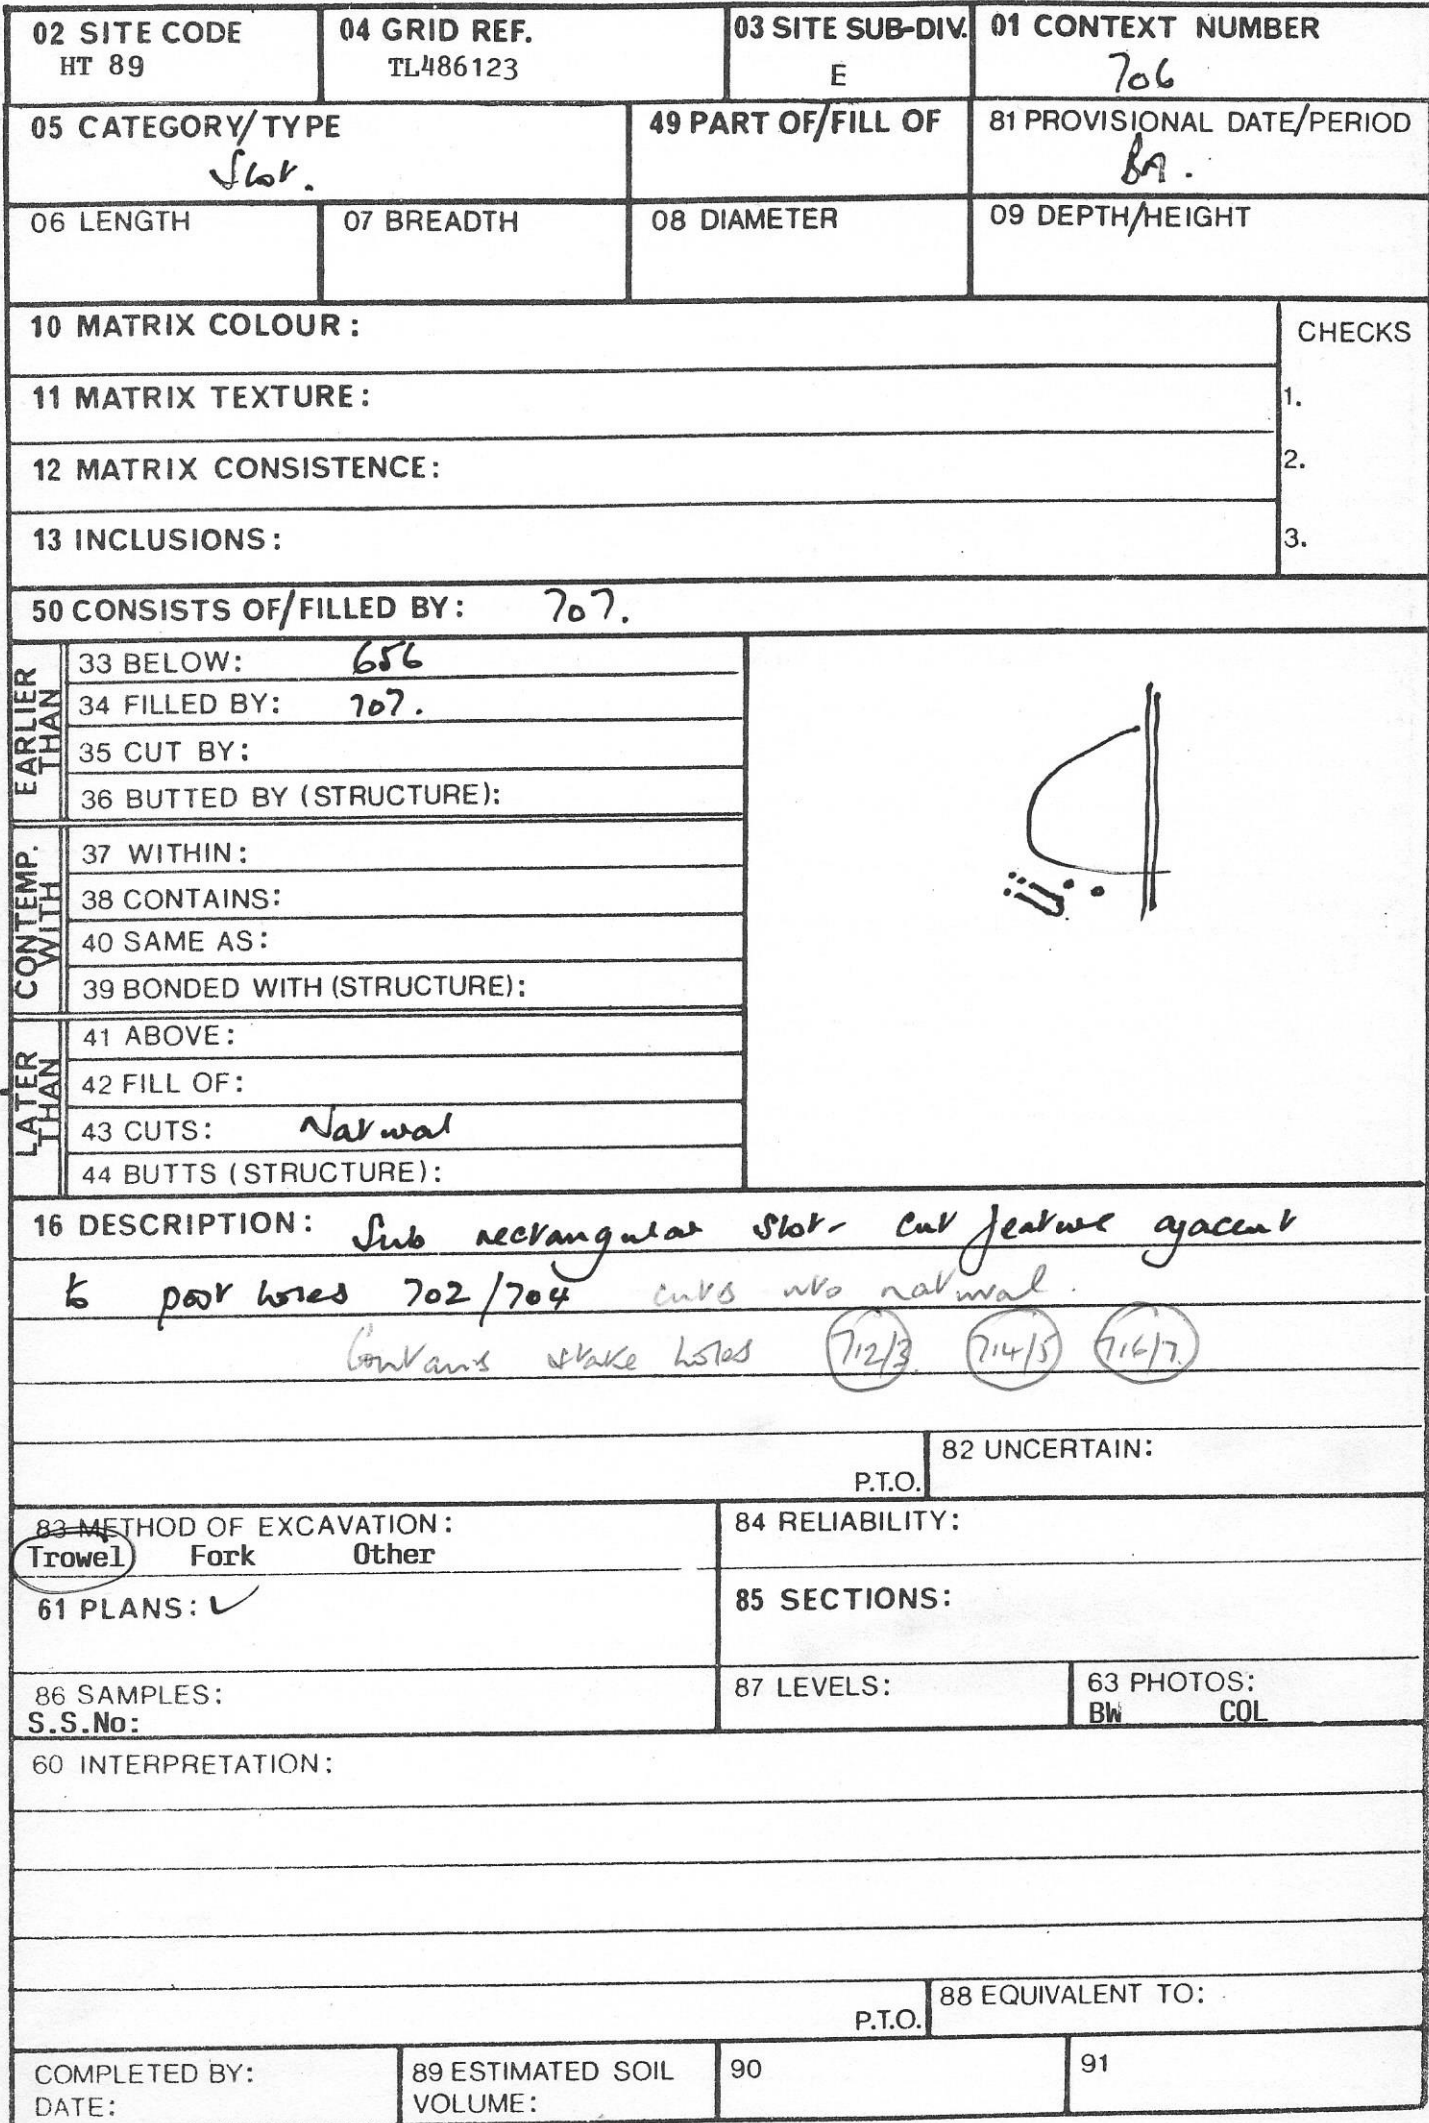 02 SITE CODE
HT 89
04 GRID REF.
TL486123
03 SITE SUB-DIV.
E
01 CONTEXT NUMBER
706
05 CATEGORY/TYPE
Slot.
49 PART OF/FILL OF
81 PROVISIONAL DATE/PERIOD
BA.
06 LENGTH
07 BREADTH
08 DIAMETER
09 DEPTH/HEIGHT
10 MATRIX COLOUR:
CHECKS
11 MATRIX TEXTURE:
1.
12 MATRIX CONSISTENCE:
2.
13 INCLUSIONS:
3.
50 CONSISTS OF/FILLED BY: 707.
EARLIER THAN
33 BELOW: 656
34 FILLED BY: 707.
35 CUT BY:
36 BUTTED BY (STRUCTURE):
CONTEMP. WITH
37 WITHIN:
38 CONTAINS:
40 SAME AS:
39 BONDED WITH (STRUCTURE):
LATER THAN
41 ABOVE:
42 FILL OF:
43 CUTS: Natural
44 BUTTS (STRUCTURE):
16 DESCRIPTION: Sub rectangular slot - cut feature ajacent
to post holes 702/704 cuts into natural.
Contains stake holes 712/3 714/5 716/7.
P.T.O.
82 UNCERTAIN:
83 METHOD OF EXCAVATION:
Trowel Fork Other
84 RELIABILITY:
61 PLANS: ✓
85 SECTIONS:
86 SAMPLES:
S.S.No:
87 LEVELS:
63 PHOTOS:
BW COL
60 INTERPRETATION:
P.T.O.
88 EQUIVALENT TO:
COMPLETED BY:
DATE:
89 ESTIMATED SOIL
VOLUME:
90
91